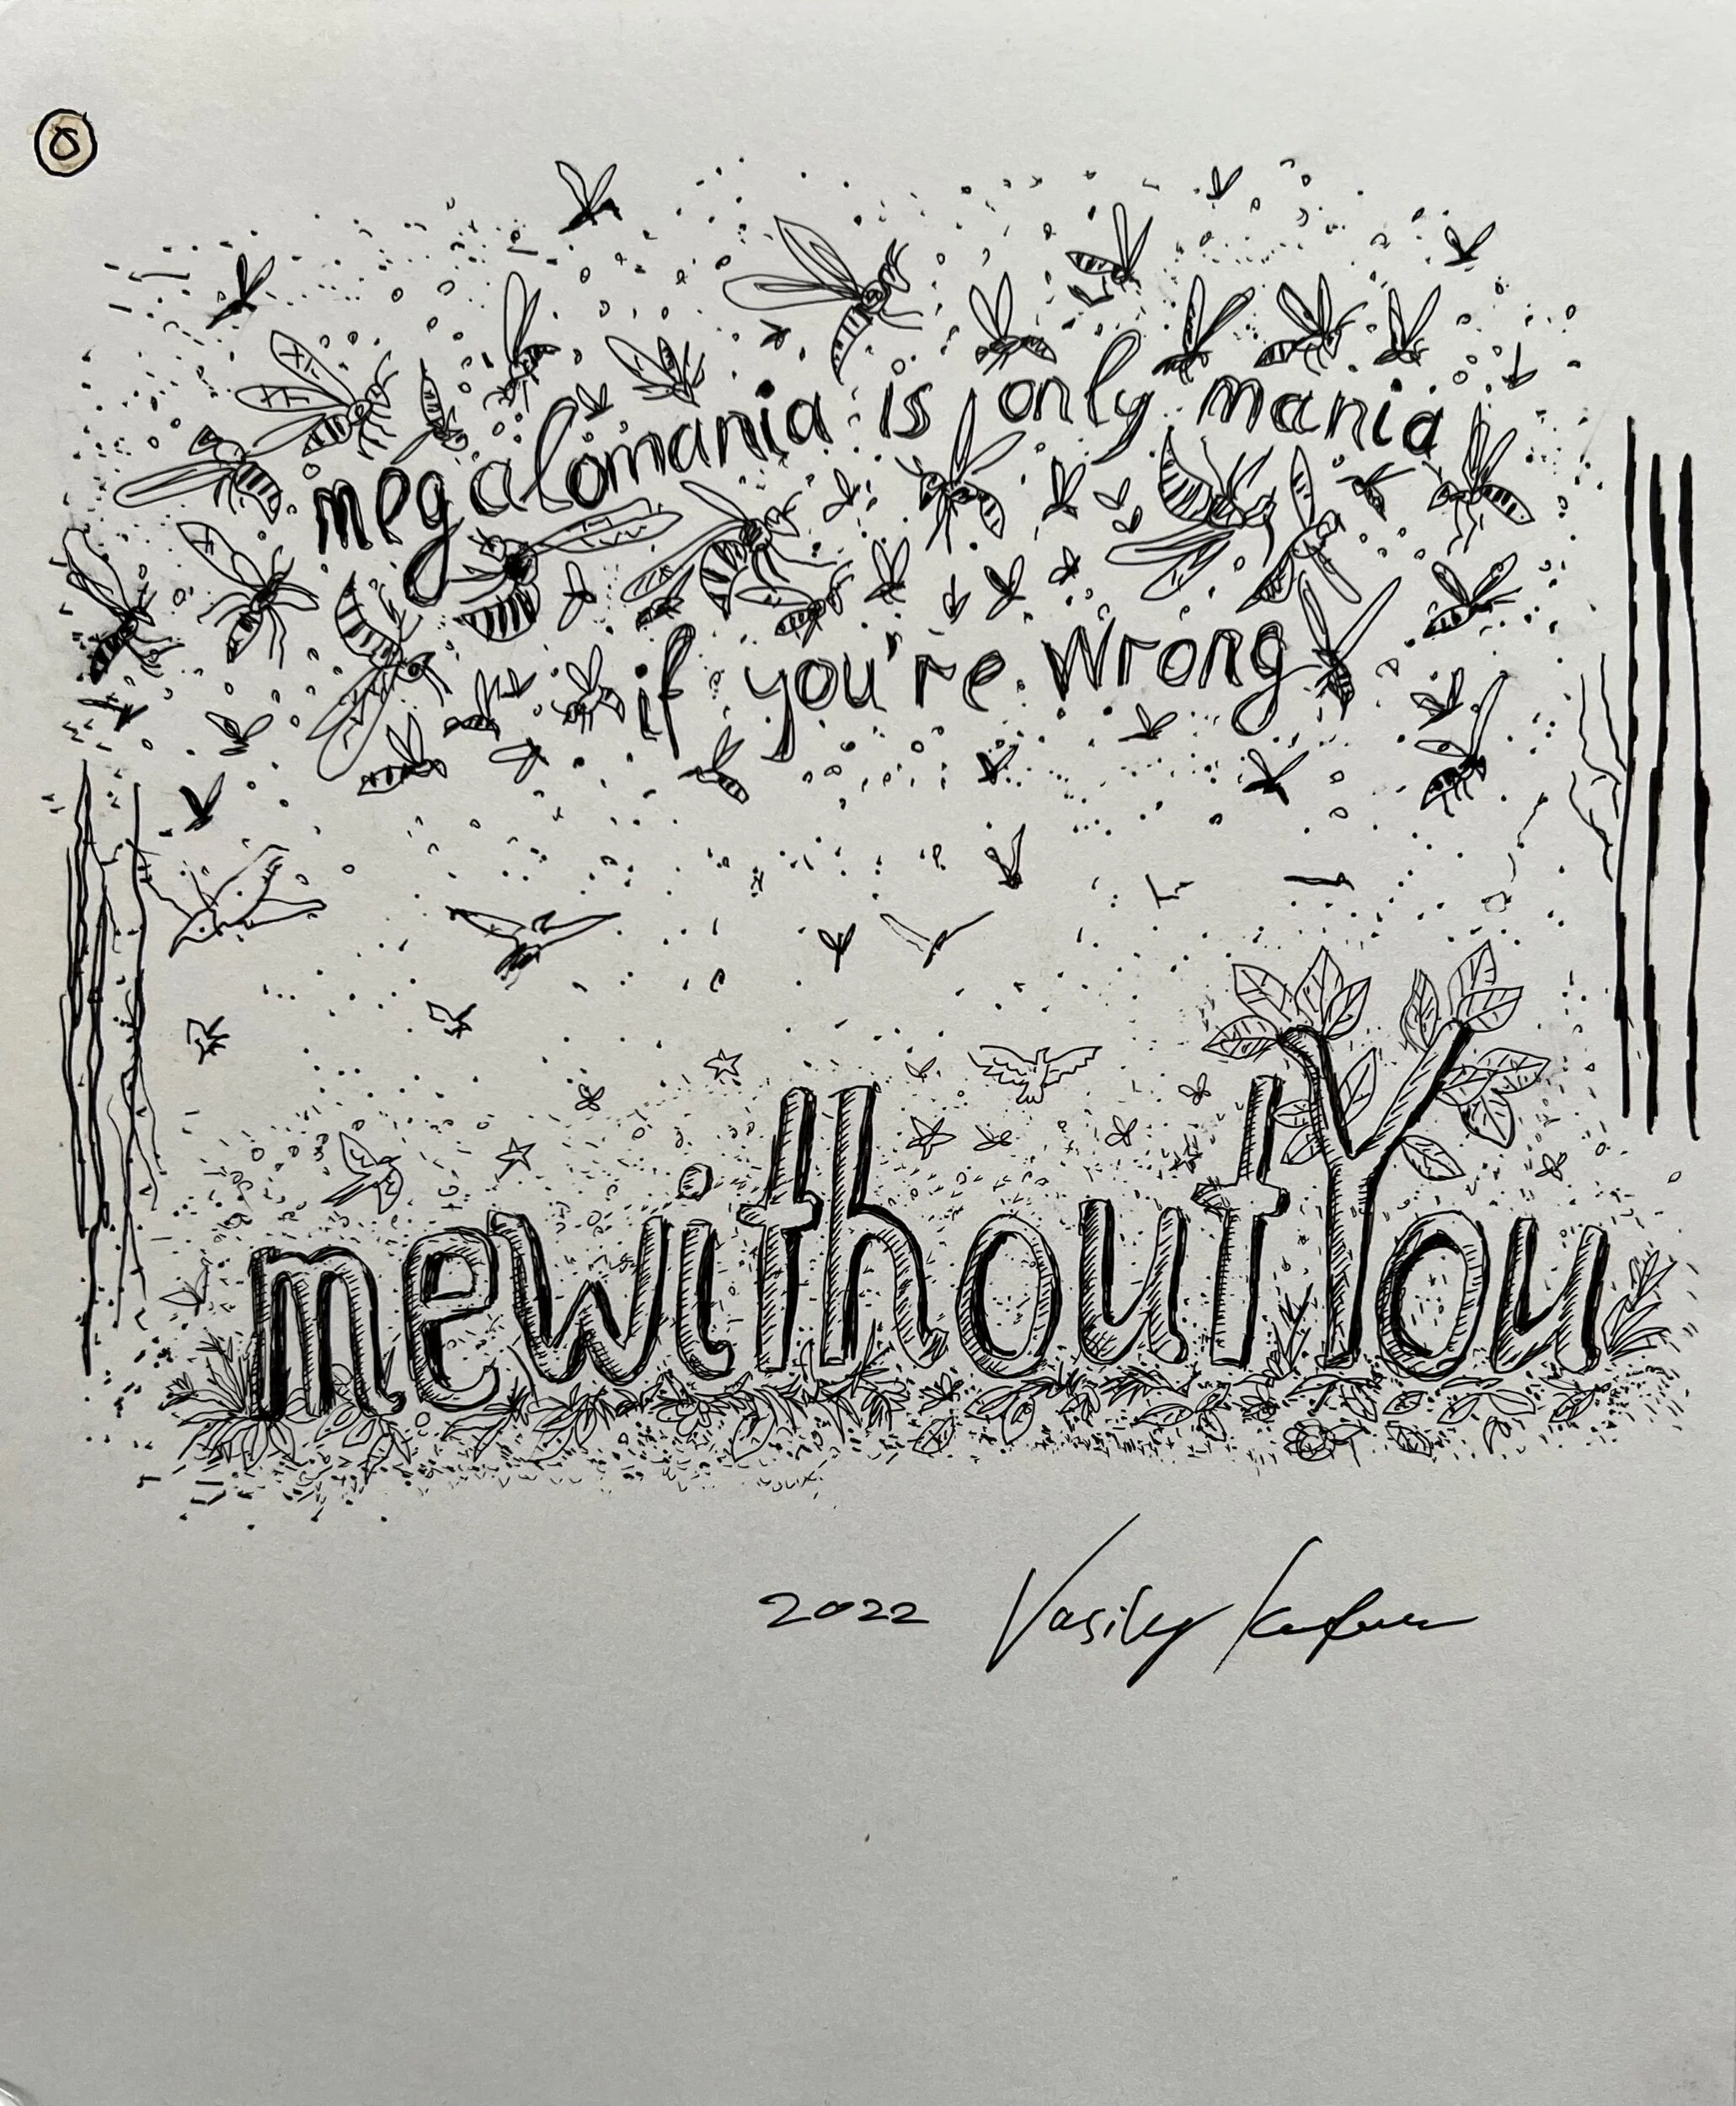 megalomania is only mania
if you're wrong
mewithoutYou
2022 Vasily